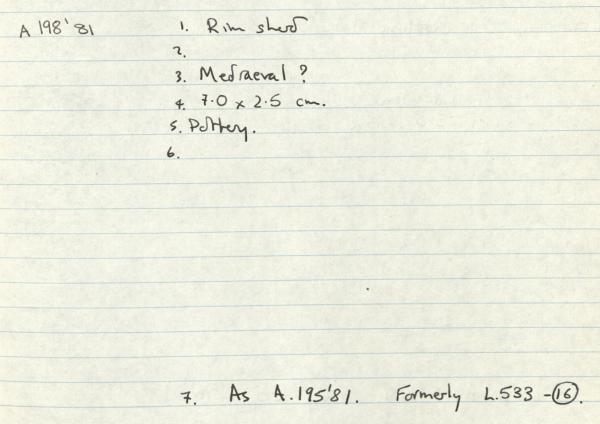 A 198'81
1. Rim sherd
2.
3. Mediaeval ?
4. 7.0 x 2.5 cm.
5. Pottery.
6.
7. As A.195'81. Formerly L.533 - 16.